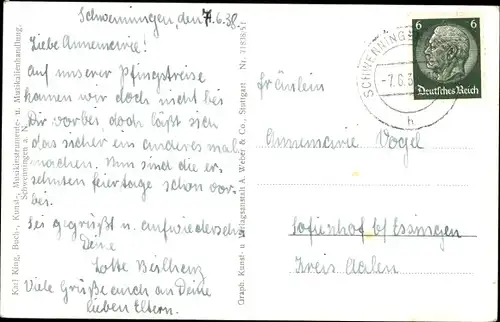 Schwenningen, den 7.6.38.
Liebe Annemarie!
Auf unserer Pfingstreise
kamen wir doch nicht bei
Dir vorbei, doch läßt sich
das sicher ein anderes mal
machen. Nun sind die er-
sehnten Feiertage schon vor-
bei.
Sei gegrüßt u. aufwiedersehn
Deine
Lotte Beilharz
Viele Grüße auch an Deine
lieben Eltern.
Karl King, Buch-, Kunst-, Musikinstrumente- u. Musikalienhandlung,
Schwenningen a. N.
Graph. Kunst- u. Verlagsanstalt A. Weber & Co., Stuttgart Nr. 71838/51
SCHWENNINGEN
-7.6.3
h
6 6
Deutsches Reich
Fräulein
Annemarie Vogel
Sofienhof b/ Essingen
Kreis Aalen